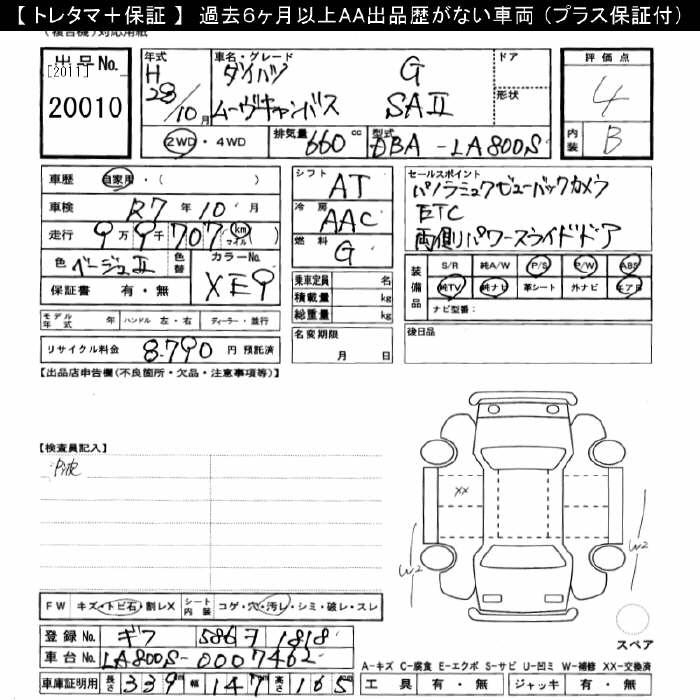 【 トレタマ＋保証 】 過去６ヶ月以上AA出品歴がない車両（プラス保証付）
出品No. [2011]
20010
年式 H 28/10月
車名・グレード ダイハツ G
ムーヴキャンバス SAⅡ
ドア
形状
評価点 4
内装 B
2WD ・ 4WD 排気量 660 cc 型式 DBA - LA800S
車歴 自家用 ・（ ）
車検 R7 年 10 月
走行 9万9千707 (km マイル)
色 ベージュⅡ 色替 カラーNo. XE9
保証書 有 ・ 無
シフト AT
冷房 AAC
燃料 G
乗車定員 名
積載量 kg
総重量 kg
セールスポイント
パノラミックビューバックカメラ
ETC
両側パワースライドドア
装備品 S/R 純A/W P/S P/W ABS
純TV 純ナビ 革シート 外ナビ エアB
ナビ型番：
モデル年式 年 ハンドル 左・右 ディーラー・並行
リサイクル料金 8,790 円 預託済
名変期限
月 日
後日品
【出品店申告欄（不良箇所・欠品・注意事項等）】
【検査員記入】
XX
W2
W2
FW キズ・トビ石・割レX シート内装 コゲ・穴・汚レ・シミ・破レ・スレ
登録No. ギフ 586 ヲ 1818
車台No. LA800S-0007462
車庫証明用 長さ 339 幅 147 高さ 165
スペア
A-キズ C-腐食 E-エクボ S-サビ U-凹ミ W-補修 XX-交換済
工具 有 ・ 無 ジャッキ 有 ・ 無